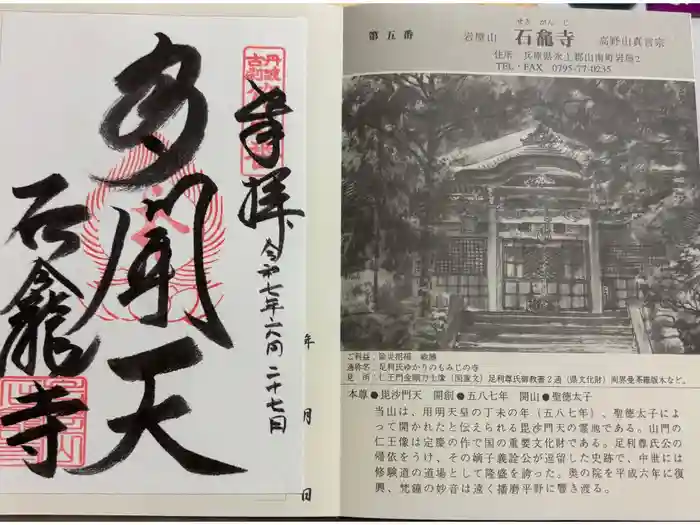 奉拝
令和七年六月二十七日
多聞天
石龕寺
年
月
日
第五番
岩屋山
せきがんじ
石龕寺
高野山真言宗
住所 兵庫県氷上郡山南町岩屋2
TEL・FAX 0795-77-0235
ご利益．除災招福 戦勝
通称名．足利氏ゆかりのもみじの寺
見 所．仁王門金剛力士像（国重文）足利尊氏御教書２通（県文化財）両界曼荼羅版木など。
本尊●毘沙門天 開創●五八七年 開山●聖徳太子
当山は、用明天皇の丁未の年（五八七年）、聖徳太子によ
って開かれたと伝えられる毘沙門天の霊地である。山門の
仁王像は定慶の作で国の重要文化財である。足利尊氏公の
帰依をうけ、その嫡子義詮公が逗留した史跡で、中世には
修験道の道場として隆盛を誇った。奥の院を平成六年に復
興、梵鐘の妙音は遠く播磨平野に響き渡る。